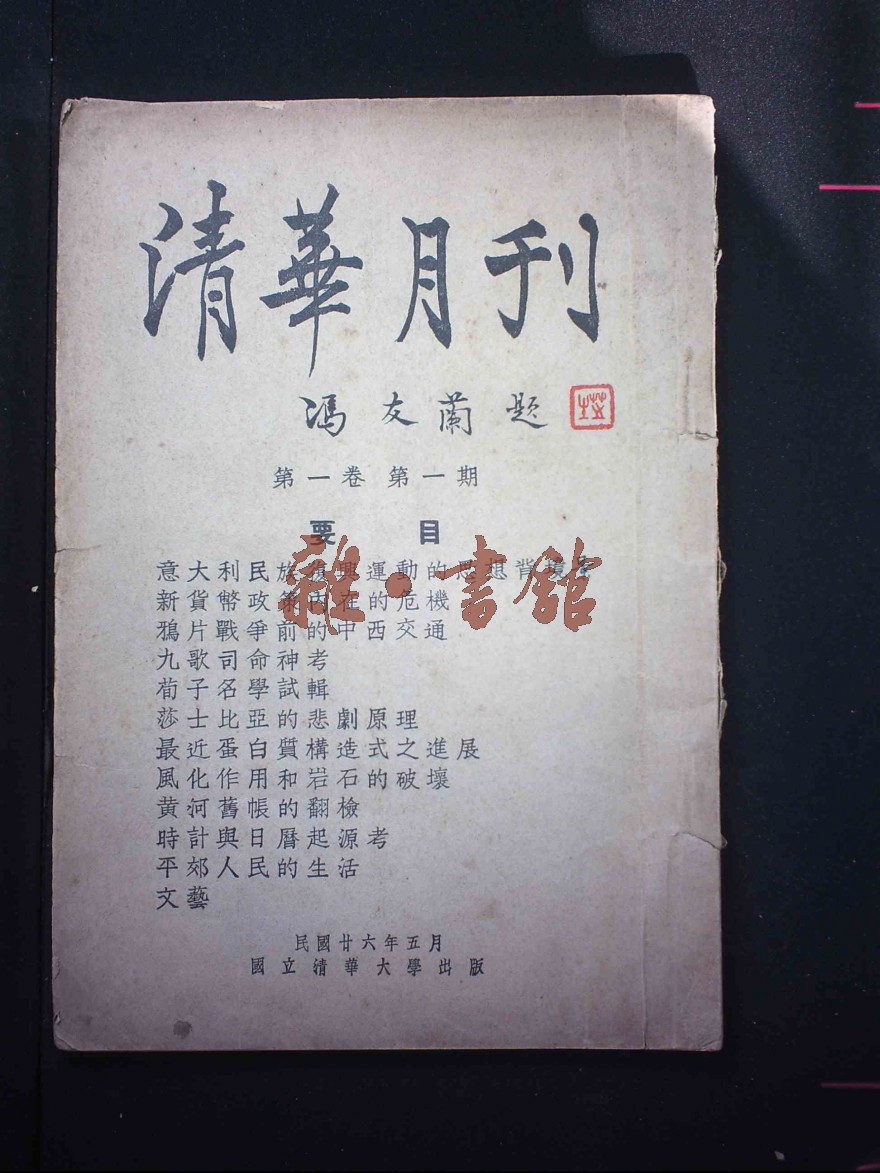 清華月刊
馮友蘭題
第一卷 第一期
要目
意大利民族復興運動的思想背景
新貨幣政策內在的危機
鴉片戰爭前的中西交通
九歌司命神考
荀子名學試輯
莎士比亞的悲劇原理
最近蛋白質構造式之進展
風化作用和岩石的破壞
黄河舊帳的翻檢
時計與日曆起源考
平郊人民的生活
文藝
民國廿六年五月
國立清華大學出版
雜·書館